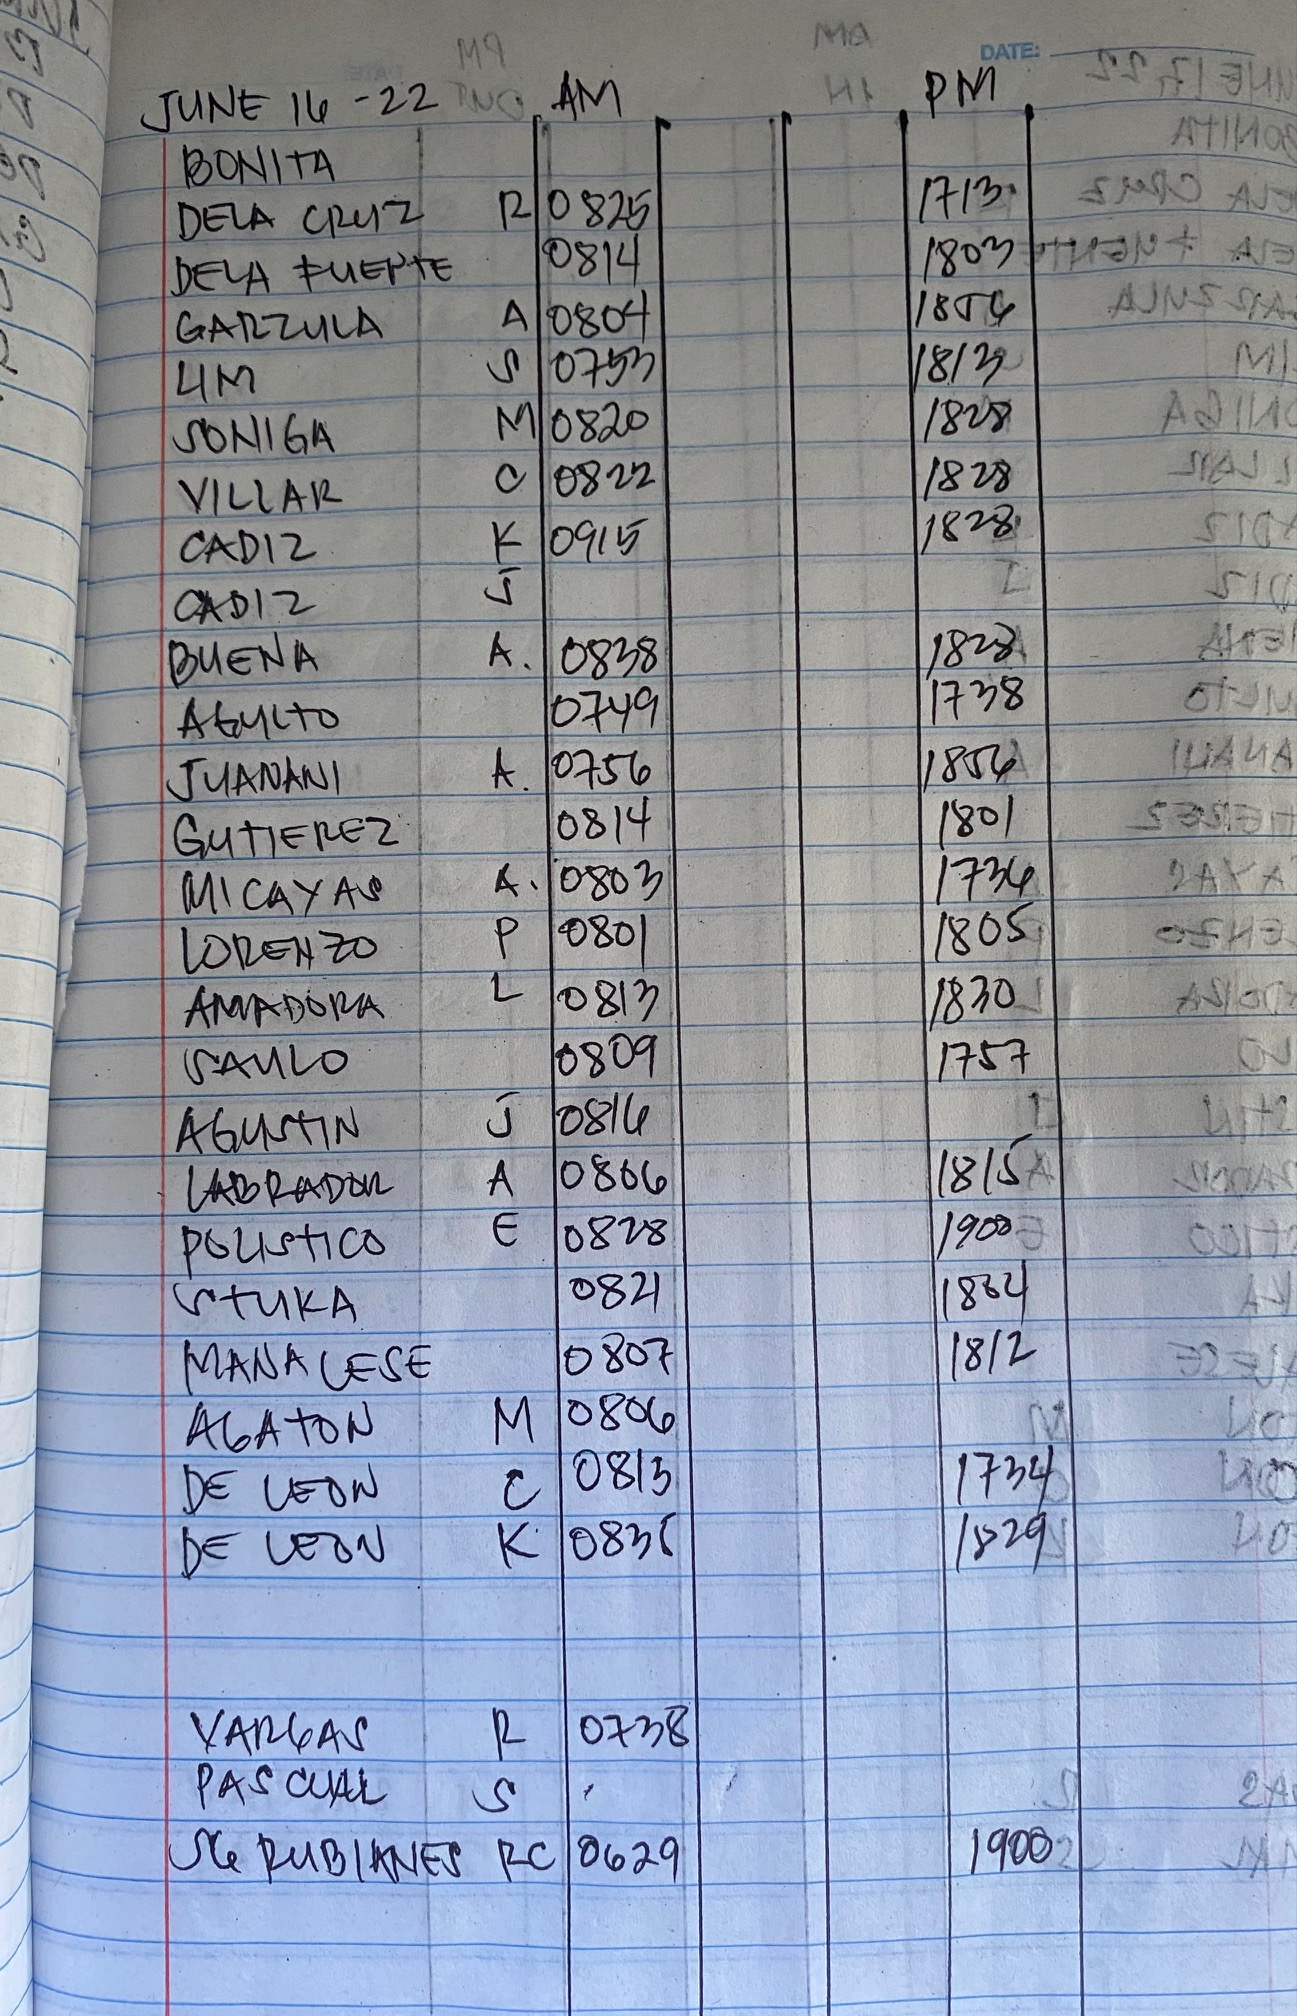 DATE:
JUNE 16-22 AM PM
BONITA
DELA CRUZ R 0825 1713
DELA FUENTE 0814 1803
GARZULA A 0804 1856
LIM S 0753 1813
SONIGA M 0820 1828
VILLAR C 0822 1828
CADIZ K 0915 1828
CADIZ J
BUENA A. 0838 1828
AGULTO 0749 1738
JUANANI A. 0756 1856
GUTIEREZ 0814 1801
MICAYAS A. 0803 1736
LORENZO P 0801 1805
AMADORA L 0813 1830
SAULO 0809 1757
AGUSTIN J 0816
LABRADOR A 0806 1815
POLISTICO E 0828 1900
STUKA 0821 1804
MANALESE 0807 1812
AGATON M 0806
DE LEON C 0813 1734
DE LEON K 0835 1829
VARGAS R 0738
PASCUAL S
SG RUBIANES RC 0629 1900